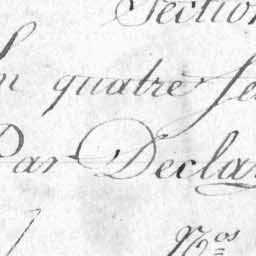 Section
En quatre fe
Par Decla
Nos